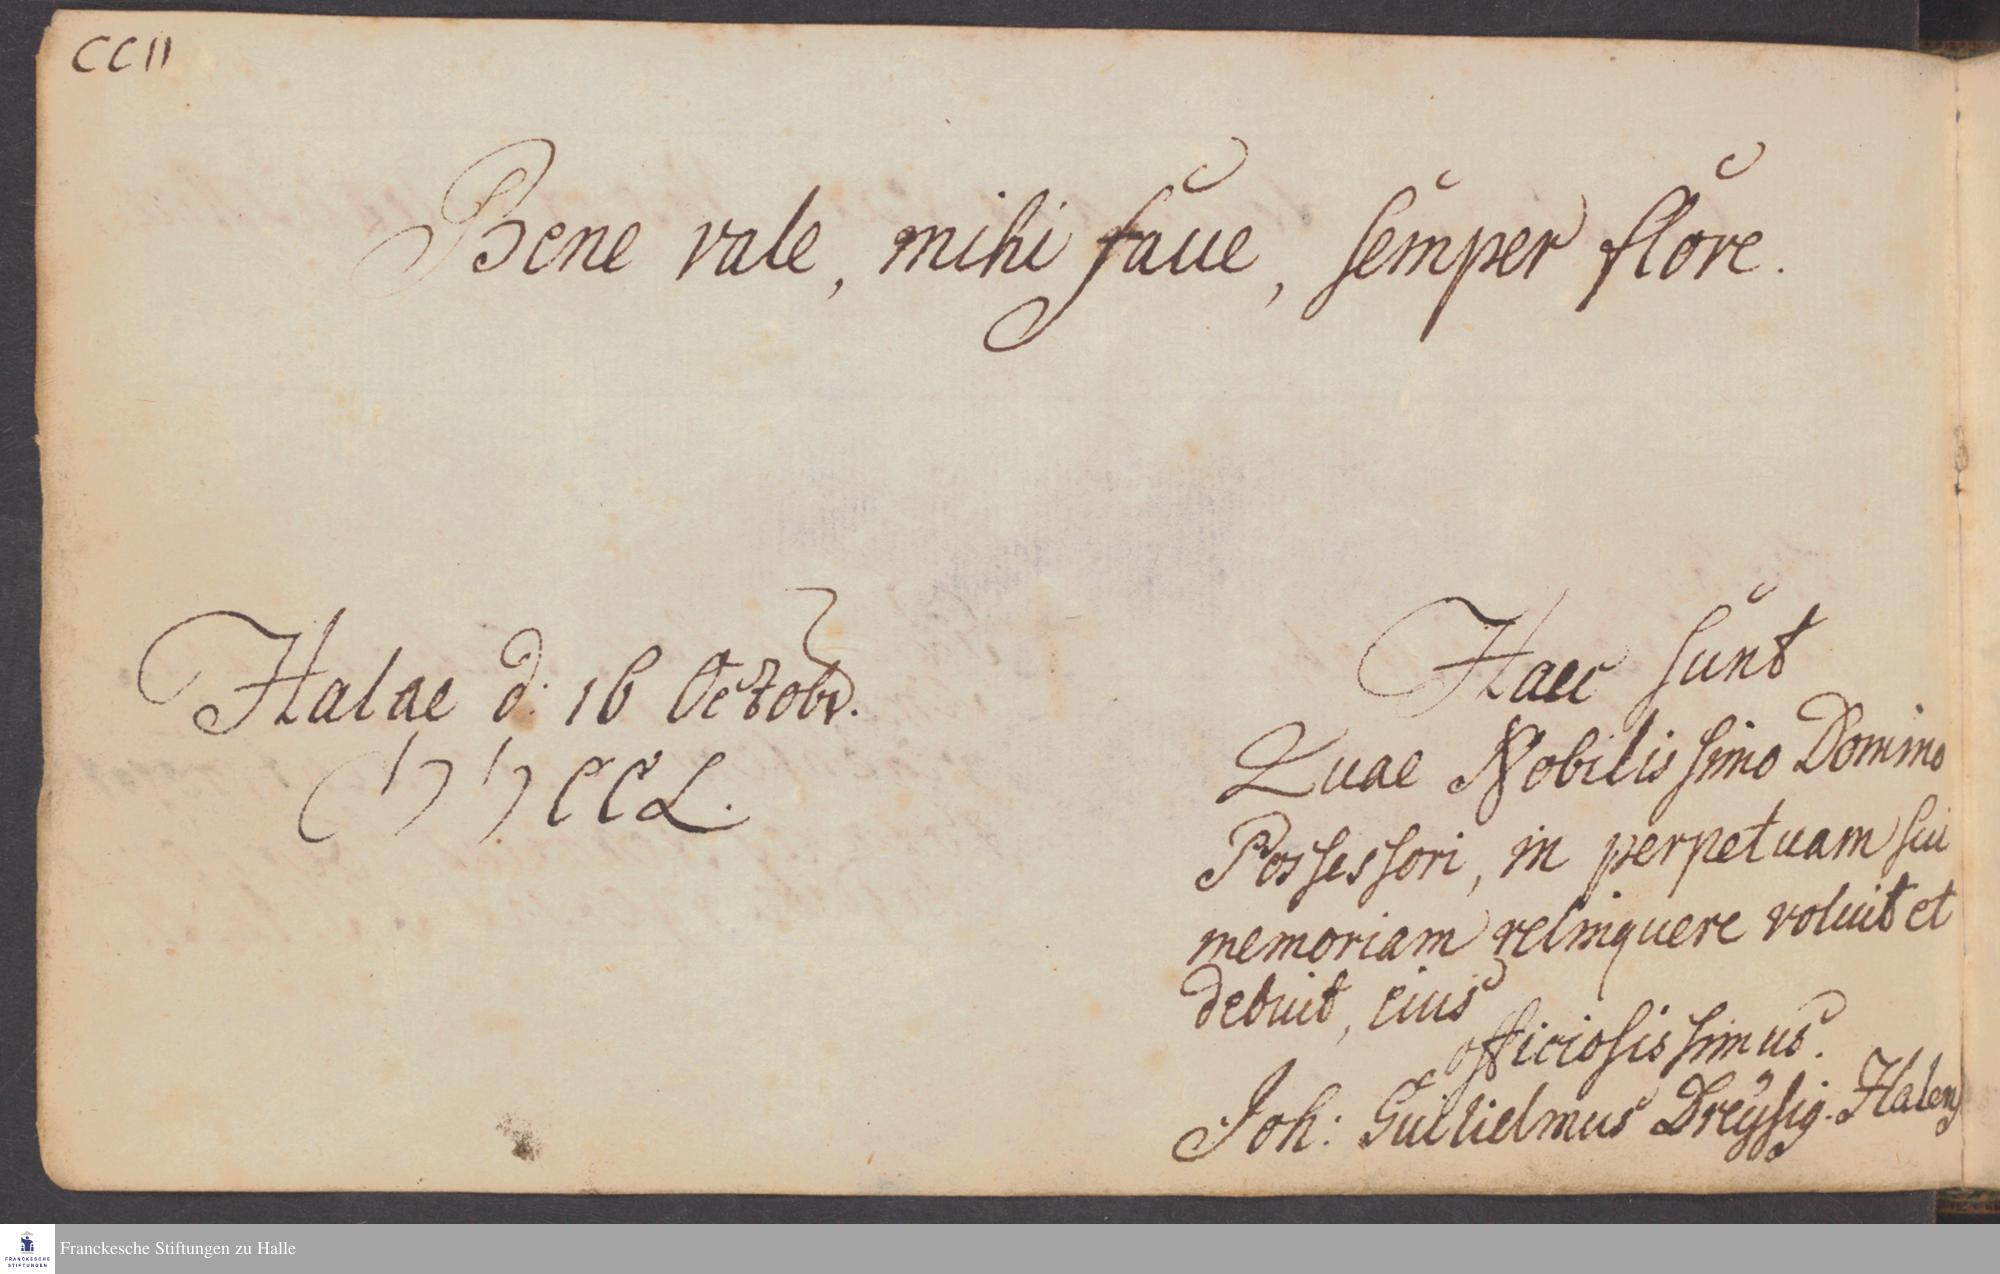 CCII
Bene vale, mihi faue, semper flore.
Halae d: 16 Octobr.
CIↃ IↃCCL.
Haec sunt
Quae Nobilissimo Domino
Possessori, in perpetuam sui
memoriam relinquere voluit et
debuit, eius
officiosissimus.
Joh: Guilielmus Dreysig. Halens
Franckesche Stiftungen zu Halle
FRANCKESCHE
STIFTUNGEN